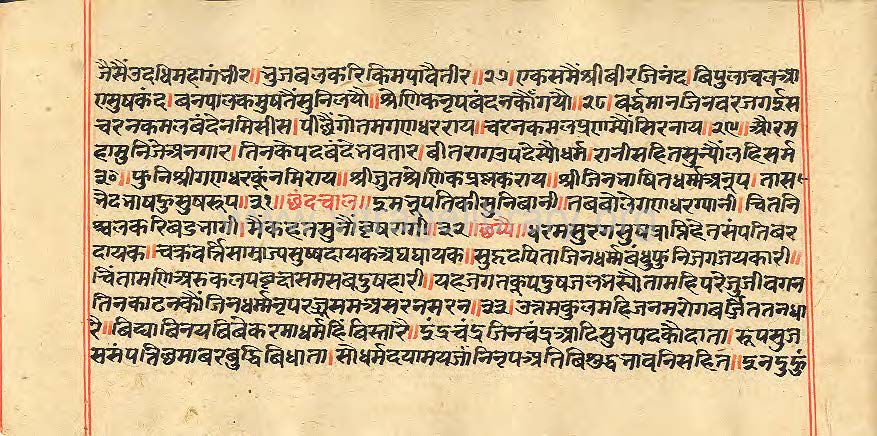 जैसैं उदधि महागंभीर॥ भुजबल करि किम पावै तीर॥२७॥ एक समैं श्री बीर जिनंद। बिपुलाचल आ
ए सुषकंद। बनपालक मुषतैं सुनि लयौ॥ श्रेणिक नृप बंदनकौं गयौ॥२८॥ बर्द्धमान जिनवर जगईस
चरन कमल बंदे नमि सीस। पीछै गोतम गणधर राय॥ चरन कमल प्रणम्यौं सिर नाय॥२९॥ और म
हा मुनि जे अनगार। तिनकै पद बंदे भवतार। बीतराग उपदेस्यौ धर्म। रानी सहित सुन्यौं लहि सर्म
३०॥ फुनि श्री गणधरकूं नमि राय॥ श्रीजुत श्रेणिक प्रश्न कराय॥ श्री जिनभाषित धर्म्म अनूप। तास
नैद भाषहु सुषरूप॥३१॥ छंद चाल॥ इम भूपतिकी सुनि बानी। तब बोले गणधर ग्यानी। चित नि
श्चल करि बडभागी। मैं कहत सुनौं वृषरागी॥३२॥ छप्पै॥ परम सुर मनुष
दायक। चक्रवर्त्ति साम्राज्य सुष्षदायक अघघायक। सुहृद पिता जिनधर्म्म बंधु फुनि जग जयकारी॥
चिंतामणि अरु कलपबृछ सम सब दुषहारी॥ यह जगत कूप दुष जल भस्यौ ता महि परे जु जीव गन
तिन काढनकौं जिनधर्म्म नृप रज्जु सम असरन सरन॥३३॥ उत्तम कुल महि जनम रोग बर्जित तन धा
रै॥ बिद्या बिनय बिबेक रमा धर्महि बिस्तारै॥ इंद्र चंद्र जिनचंद्र आदि सुभ पदकौ दाता। रूप सुज
स संपत्ति छमाबर बुद्धि बिधाता। सौ धर्म दयामय जांनि नृप अति बिशुद्ध भावनि सहित॥ इन दुहुं